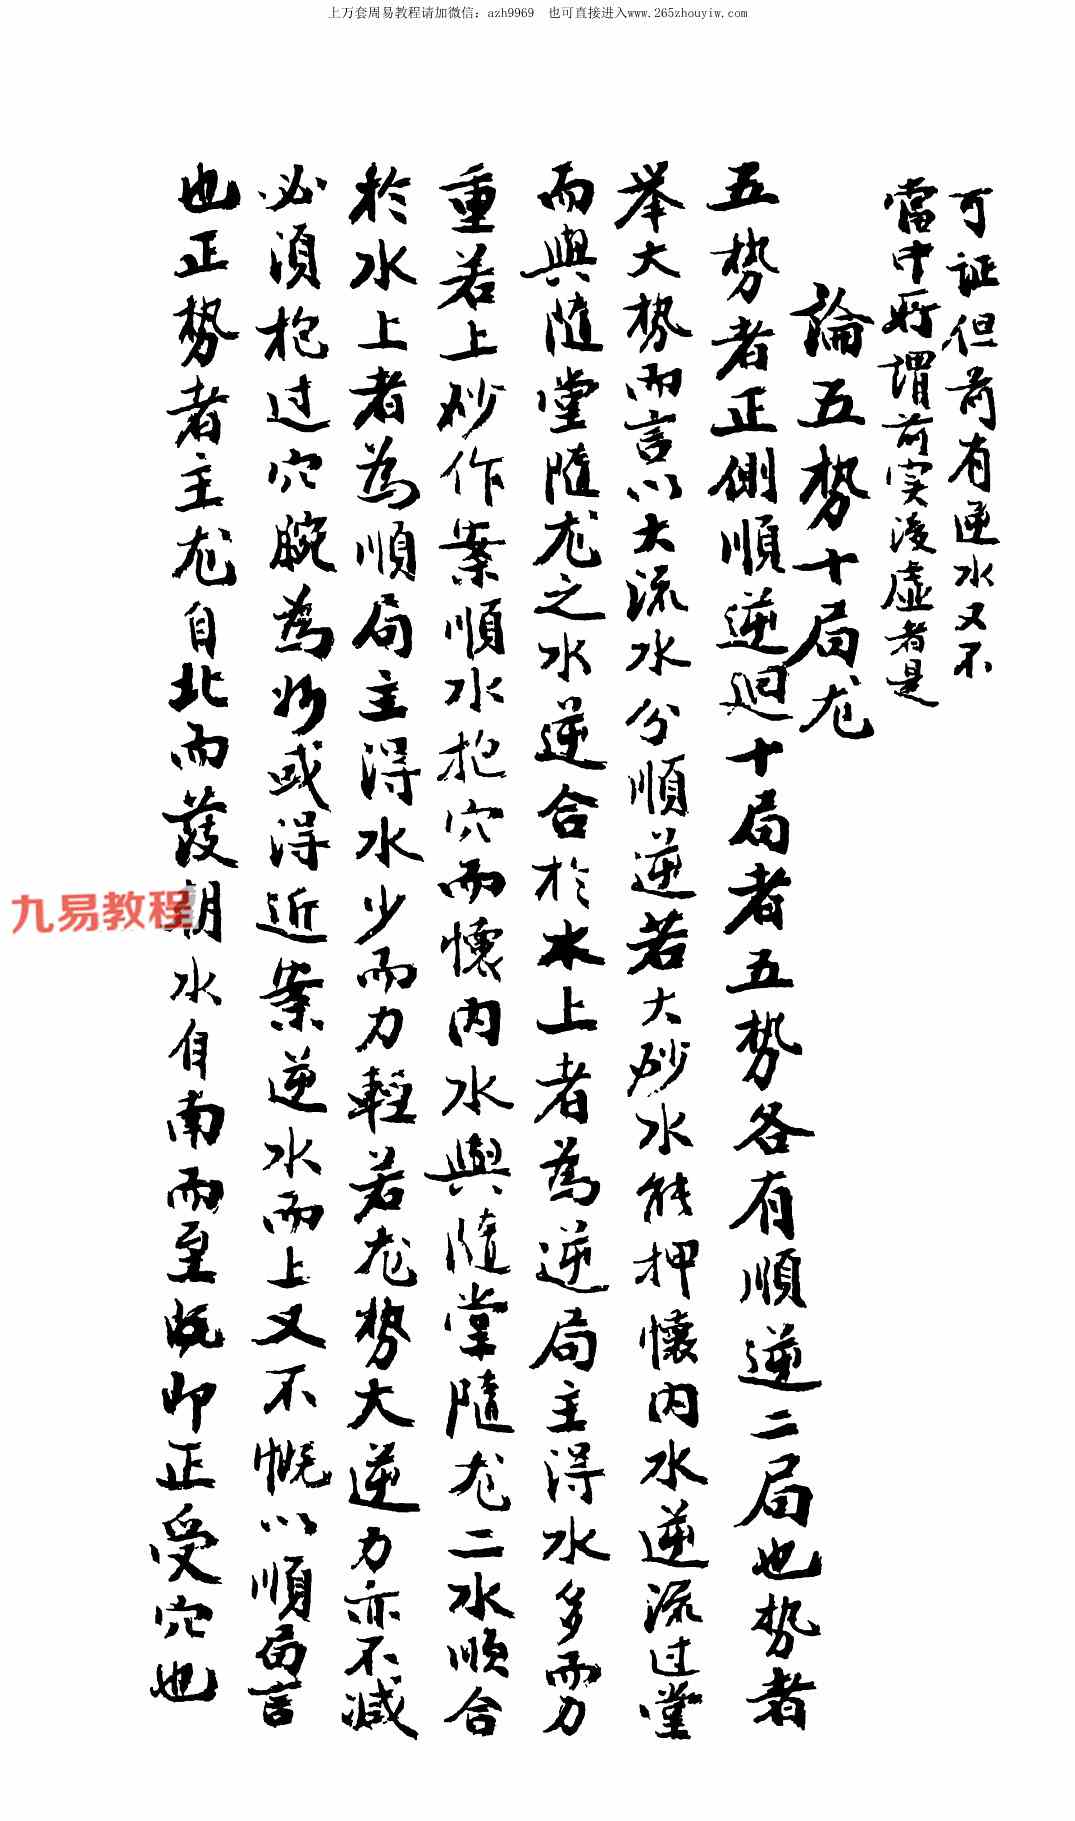 上万套周易教程请加微信：azh9969 也可直接进入www.265zhouyiw.com
可证但前有逆水又不
當中所谓前实後虚者是
論五势十局龙
五势者正側順逆迴十局者五势各有順逆二局也势者
举大势而言以大流水分順逆若大砂水能押懷内水逆流过堂
而與隨堂隨龙之水逆合於水上者為逆局主得水多而力
重若上砂作案順水抱穴而懷内水與隨堂隨龙二水順合
於水上者為順局主得水少而力輕若龙势大逆力亦不減
必須抱过穴腕為妙或得近案逆水而上又不慨以順局言
也正势者主龙自北而發朝水自南而至既卯正受穴也
九易教程